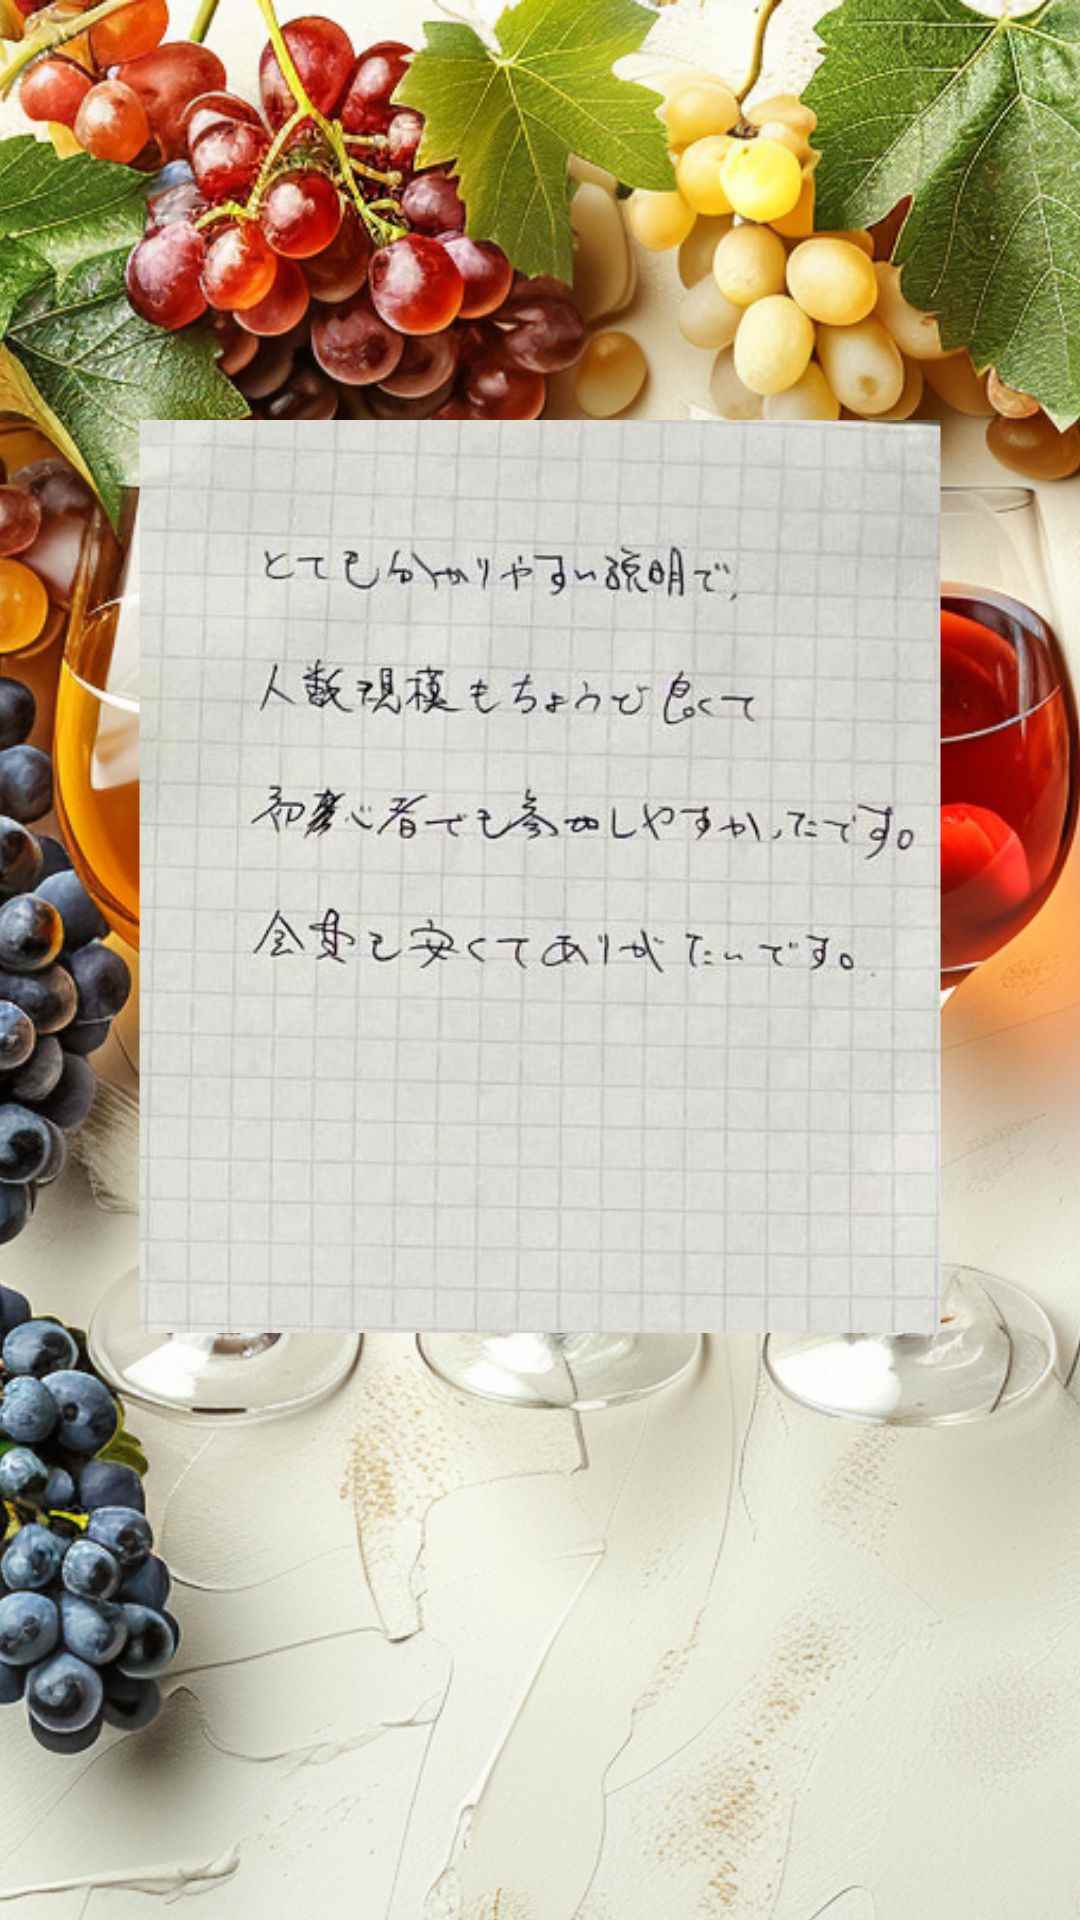 とても分かりやすい説明で、
人数規模もちょうど良くて
初心者でも参加しやすかったです。
会費も安くてありがたいです。